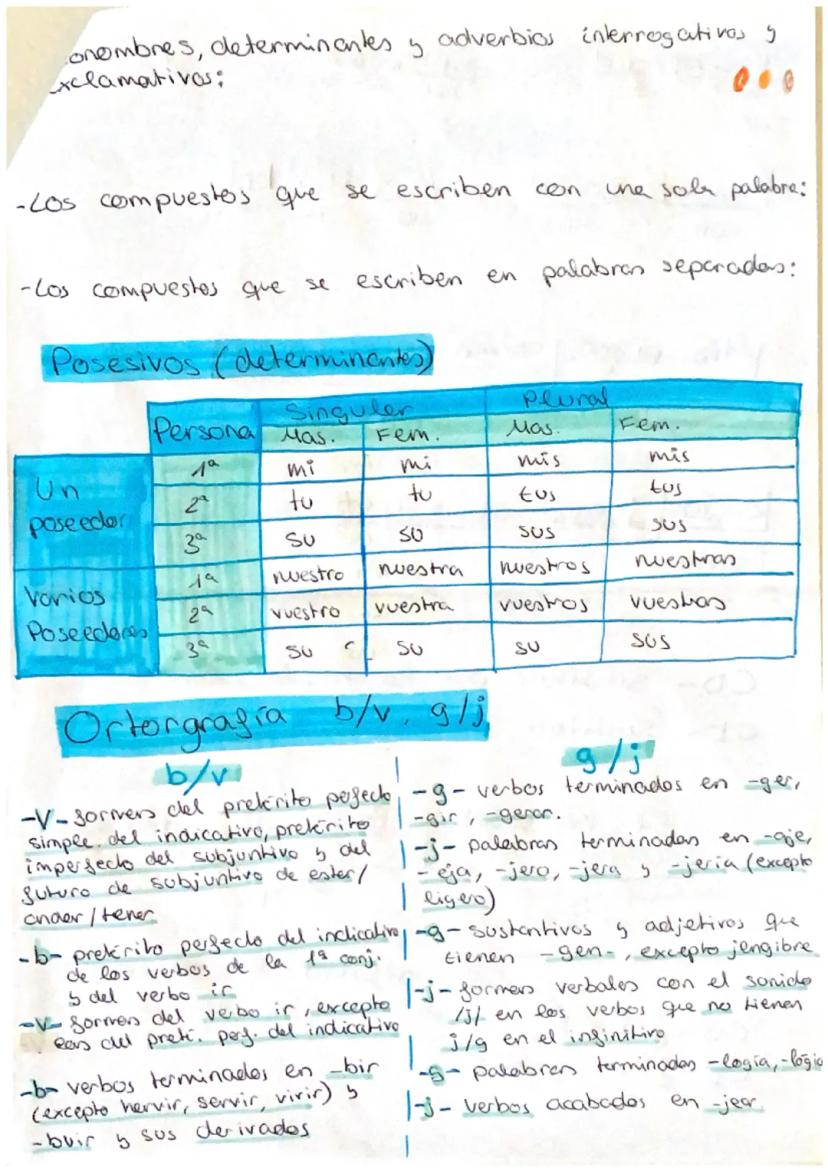 onombres, determinantes y adverbios interrogativos y
exclamativos:
-Los compuestos que se escriben con una sola palabra:
-Los compuestos que se escriben en palabras separadas:
Posesivos (determinantes)
Singular Plural
Persona Mas. Fem. Mas. Fem.
Un poseedor 1ª mi mi mis mis
2ª tu tu tus tus
3ª su su sus sus
Varios Poseedores 1ª nuestro nuestra nuestros nuestras
2ª vuestro vuestra vuestros vuestras
3ª su su su sus
Ortorgrafía b/v, g/j
b/v
-v- formers del pretérito perfecto
simple del indicativo, pretérito
imperfecto del subjuntivo y del
futuro de subjuntivo de ester/
andar/tener
-b- pretérito perfecto del indicativo
de los verbos de la 1ª conj.
y del verbo ir
-v- formas del verbo ir, excepto
eas del preté. perf. del indicativo
-b- verbos terminados en -bir
(excepto hervir, servir, vivir) y
-buir y sus derivados
g/j
-g- verbos terminados en -ger,
-gir, -gerar.
-j- palabras terminadas en -aje,
-eja, -jero, -jera y -jería (excepto
ligero)
-g- sustantivos y adjetivos que
tienen -gen-, excepto jengibre
-j- formas verbales con el sonido
/j/ en los verbos que no tienen
j/g en el infinitivo
-g- palabras terminadas -logía, -lógic
-j- verbos acabados en -jear